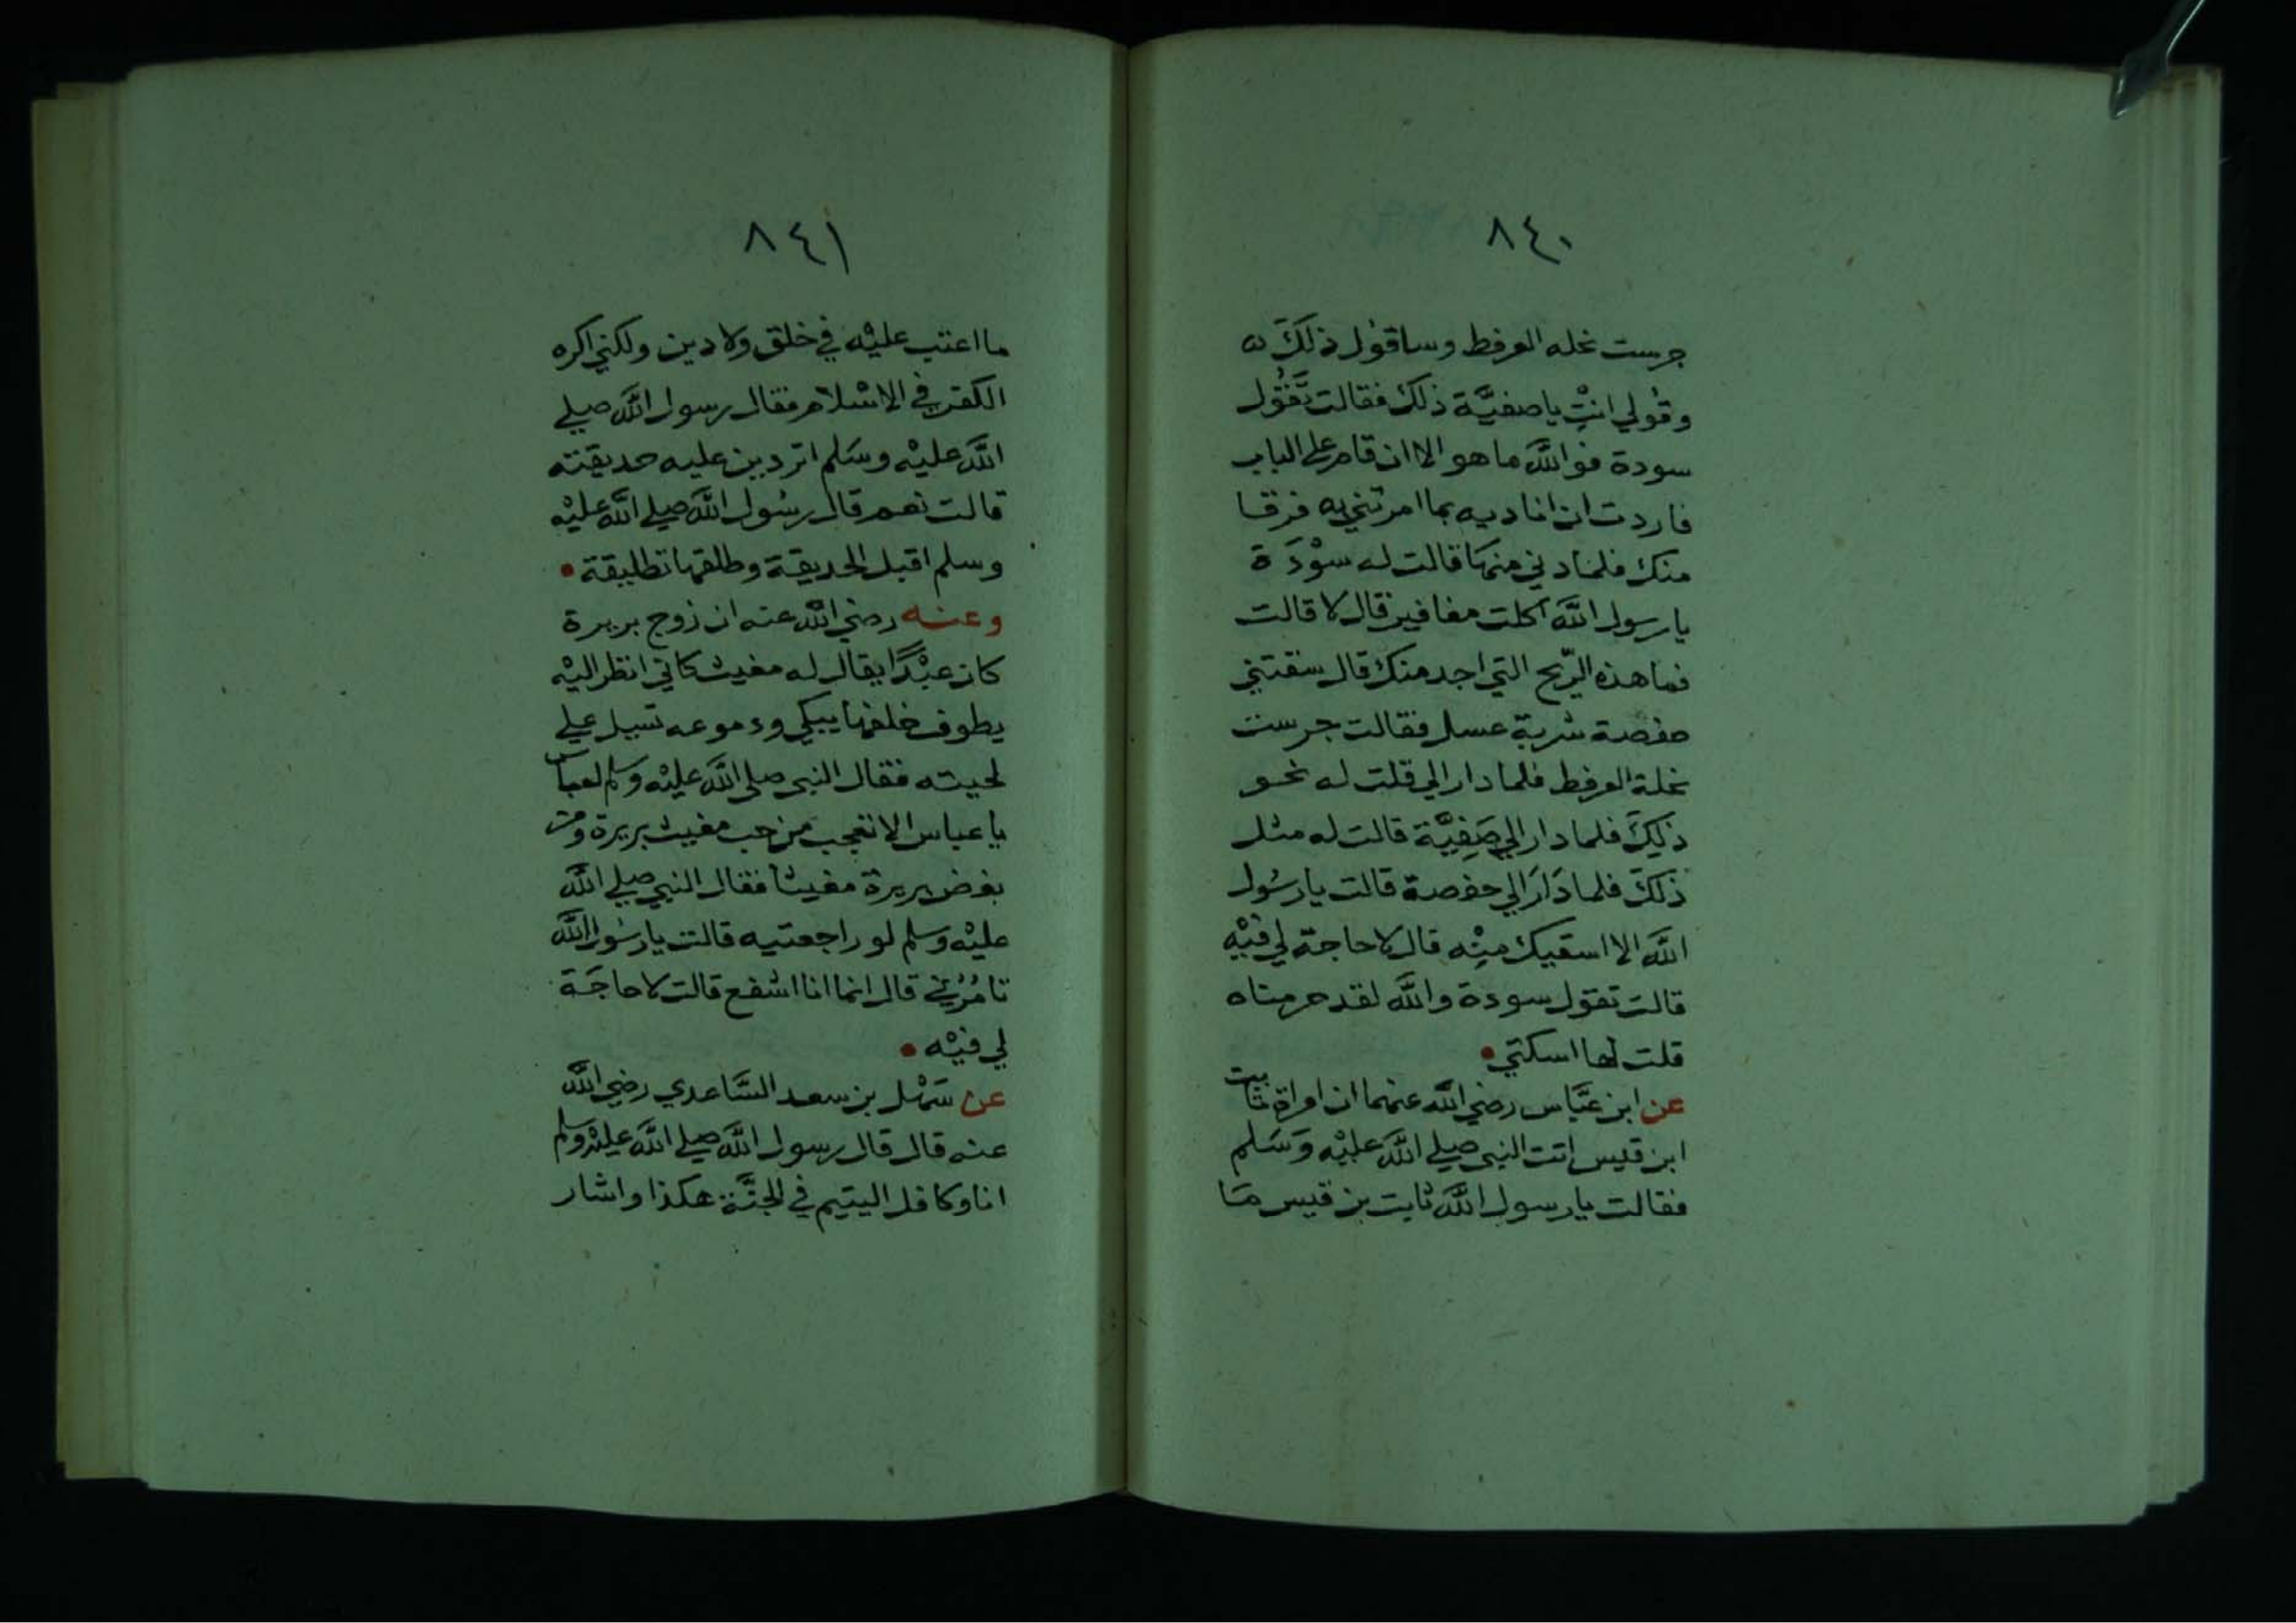 ٨٤٠
جرست نحله العرفط وساقول ذلكَ ه
وقولي انتِ يا صفيَّة ذلك فقالت تَقُول
سودة فوالله ما هو الا ان قام على الباب
فاردت ان اناديه بما امرتني به فرقا
منك فلما دني منها قالت له سوْدَة
يا رسول الله اكلت مغافير قال لا قالت
فما هذه الرّيح التي اجد منك قال سقتني
حفصة شربة عسل فقالت جرست
نحلة العرفط فلما دار الي قلت له نحو
ذلِكَ فلما دار الي صَفِيَّة قالت له مثل
ذلكَ فلما دَارَ الي حفصة قالت يا رسُول
الله الا اسقيك مِنْه قال لا حاجة لي فيْهِ
قالت تقول سودة والله لقد حرمناه
قلت لها اسكتي
عن ابن عبَّاس رضي الله عنهما ان امراة ثابت
ابن قيس اتت النبي صلي الله عليْه وَسَلم
فقالت يا رسول الله ثابت بن قيس مَا
٨٤١
ما اعتب عليْه في خلق ولا دين ولكني اكره
الكفر في الاسْلام فقال رسول الله صلي
الله عليْه وسَلم اتردين عليه حديقته
قالت نعم قال رسُول الله صلي الله عليْه
وسلم اقبل الحديقة وطلقها تطليقة
وعنه رضي الله عنه ان زوج بريرة
كان عبْدًا يقال له مغيث كاني انظر اليْه
يطوف خلفها يبكي ودموعه تسيل علي
لحيته فقال النبي صلى الله عليْه وسلم لعباس
يا عباس الا تعجب من حب مغيث بريرة ومن
بغض بريرة مغيثا فقال النبي صلي الله
عليْه وسلم لو راجعتيه قالت يا رسُول الله
تامُرُني قال انما انا اشفع قالت لا حاجَة
لي فيْه
عن سَهْل بن سعد السَّاعدي رضي الله
عنه قال قال رسول الله صلي الله عليْه وسلم
انا وكافل اليتيم في الجنَّة هكذا واشار